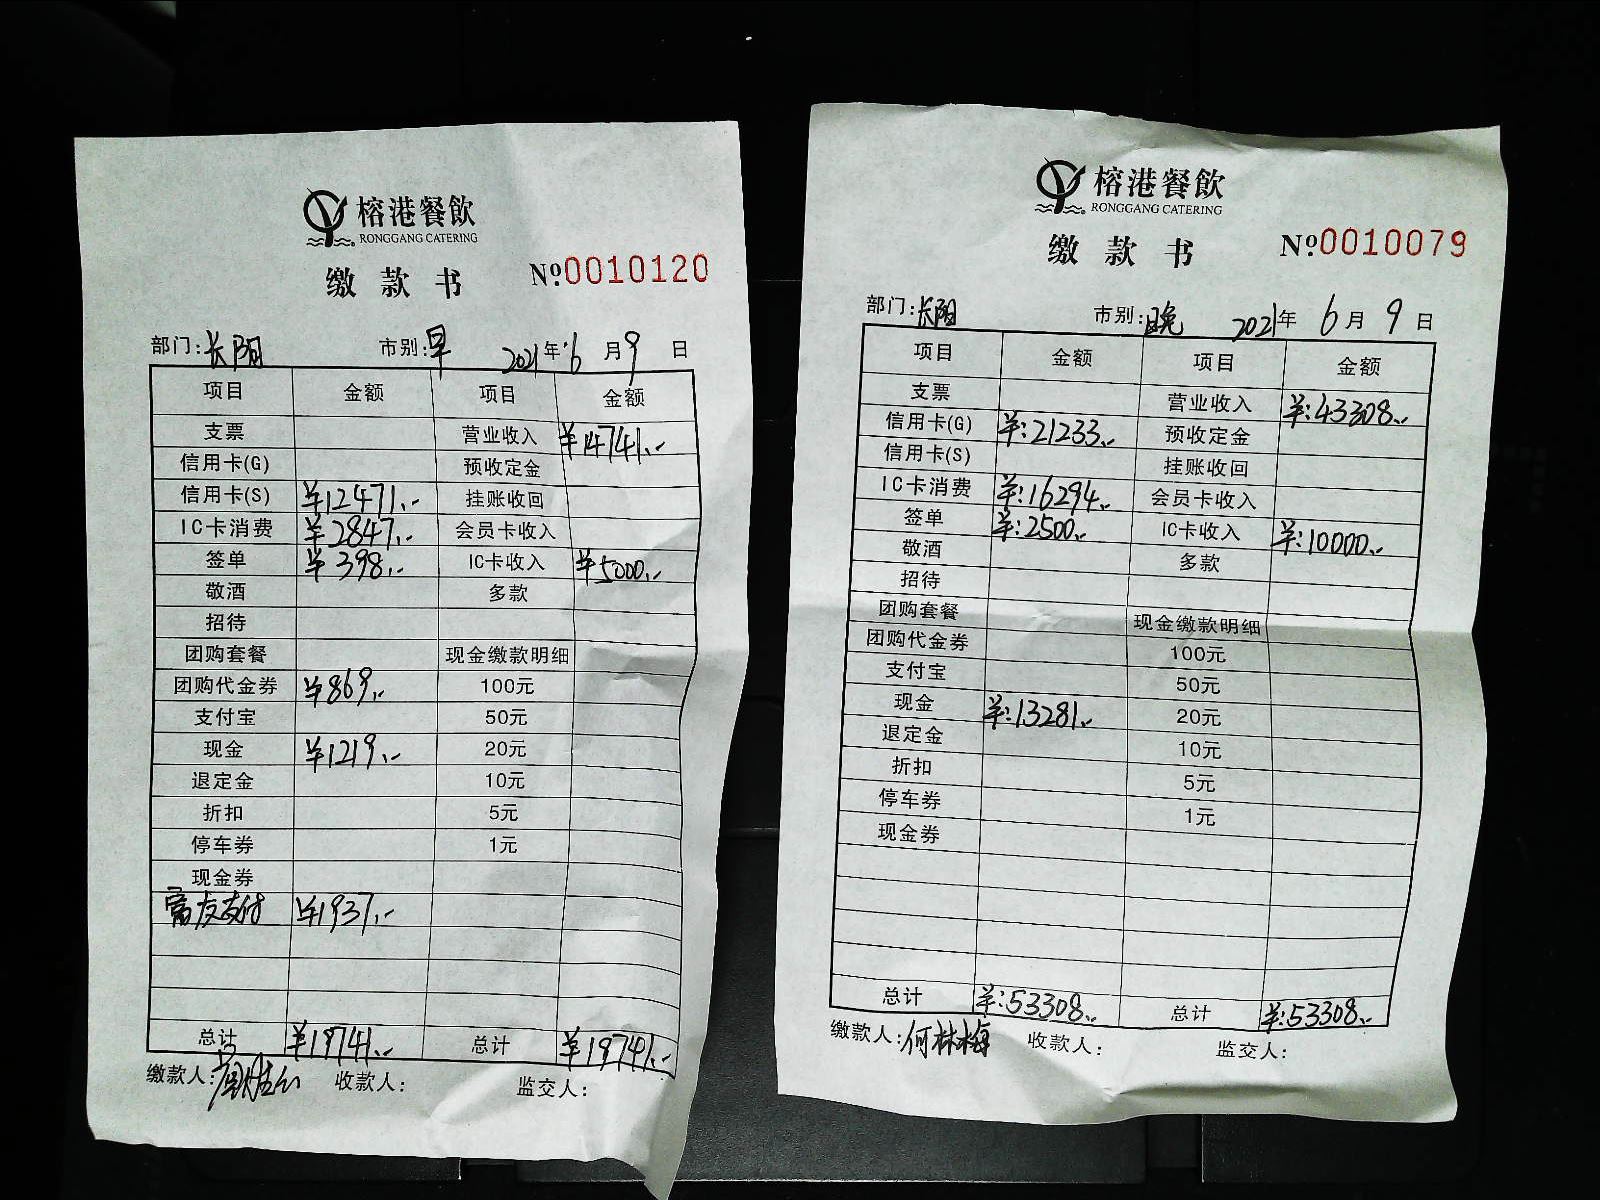 榕港餐飲
RONGGANG CATERING
缴款书 №0010120
部门:长阳 市别:早 2021年6月9日
项目 金额 项目 金额
支票 营业收入 ¥14741.-
信用卡(G) 预收定金
信用卡(S) ¥12471.- 挂账收回
IC卡消费 ¥2847.- 会员卡收入
签单 ¥398.- IC卡收入 ¥5000.-
敬酒 多款
招待
团购套餐 现金缴款明细
团购代金券 ¥869.- 100元
支付宝 50元
现金 ¥1219.- 20元
退定金 10元
折扣 5元
停车券 1元
现金券
富友支付 ¥1937.-
总计 ¥19741.- 总计 ¥19741.-
缴款人: 收款人: 监交人:
榕港餐飲
RONGGANG CATERING
缴款书 №0010079
部门:长阳 市别:晚 2021年6月9日
项目 金额 项目 金额
支票 营业收入 ¥:43308.-
信用卡(G) ¥:21233.- 预收定金
信用卡(S) 挂账收回
IC卡消费 ¥:16294.- 会员卡收入
签单 ¥:2500.- IC卡收入 ¥:10000.-
敬酒 多款
招待
团购套餐 现金缴款明细
团购代金券 100元
支付宝 50元
现金 ¥:13281.- 20元
退定金 10元
折扣 5元
停车券 1元
现金券
总计 ¥:53308.- 总计 ¥:53308.-
缴款人:何林梅 收款人: 监交人: